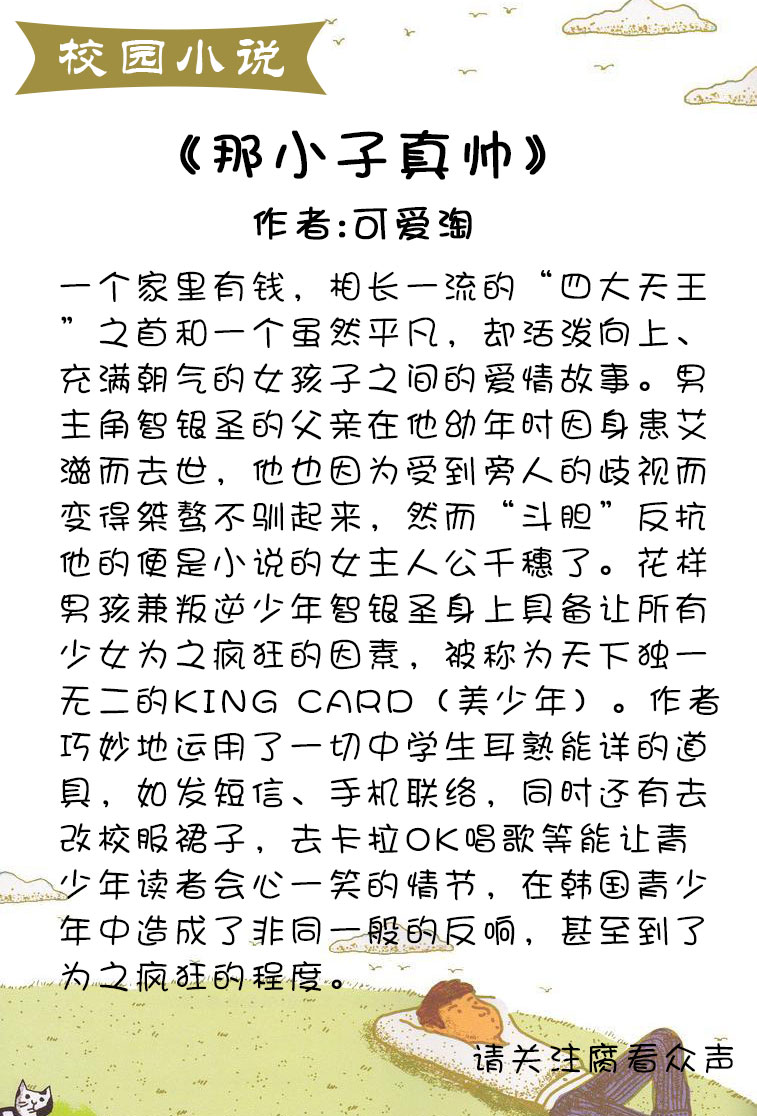 校园小说
《那小子真帅》
作者:可爱淘
一个家里有钱，相长一流的“四大天王
”之首和一个虽然平凡，却活泼向上、
充满朝气的女孩子之间的爱情故事。男
主角智银圣的父亲在他幼年时因身患艾
滋而去世，他也因为受到旁人的歧视而
变得桀骜不驯起来，然而“斗胆”反抗
他的便是小说的女主人公千穗了。花样
男孩兼叛逆少年智银圣身上具备让所有
少女为之疯狂的因素，被称为天下独一
无二的KING CARD（美少年）。作者
巧妙地运用了一切中学生耳熟能详的道
具，如发短信、手机联络，同时还有去
改校服裙子，去卡拉OK唱歌等能让青
少年读者会心一笑的情节，在韩国青少
年中造成了非同一般的反响，甚至到了
为之疯狂的程度。
请关注腐看众声